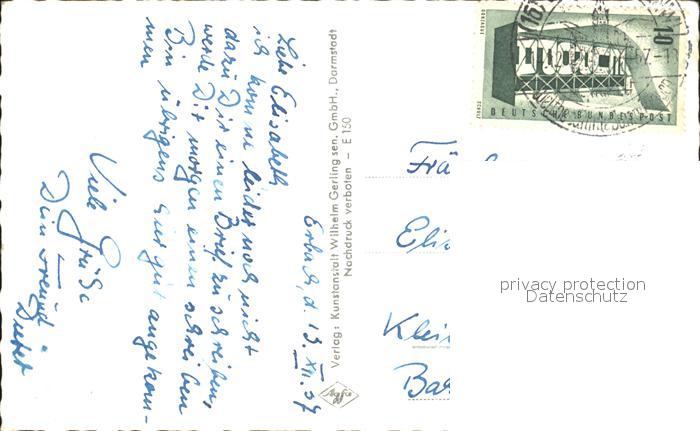 Erbach, d. 13. XII. 57
Liebe Elisabeth
ich komme leider noch nicht
dazu Dir einen Brief zu schreiben,
werde Dir morgen einen schreiben
Bin übrigens hier gut angekom-
men
Viele Grüße
Dein Freund
Dieter
Verlag: Kunstanstalt Wilhelm Gerling sen. GmbH., Darmstadt
Nachdruck verboten – E 150
Agfa
DEUTSCHE BUNDESPOST
10
(16)
Frä
Elis
Klei
Bas
privacy protection
Datenschutz